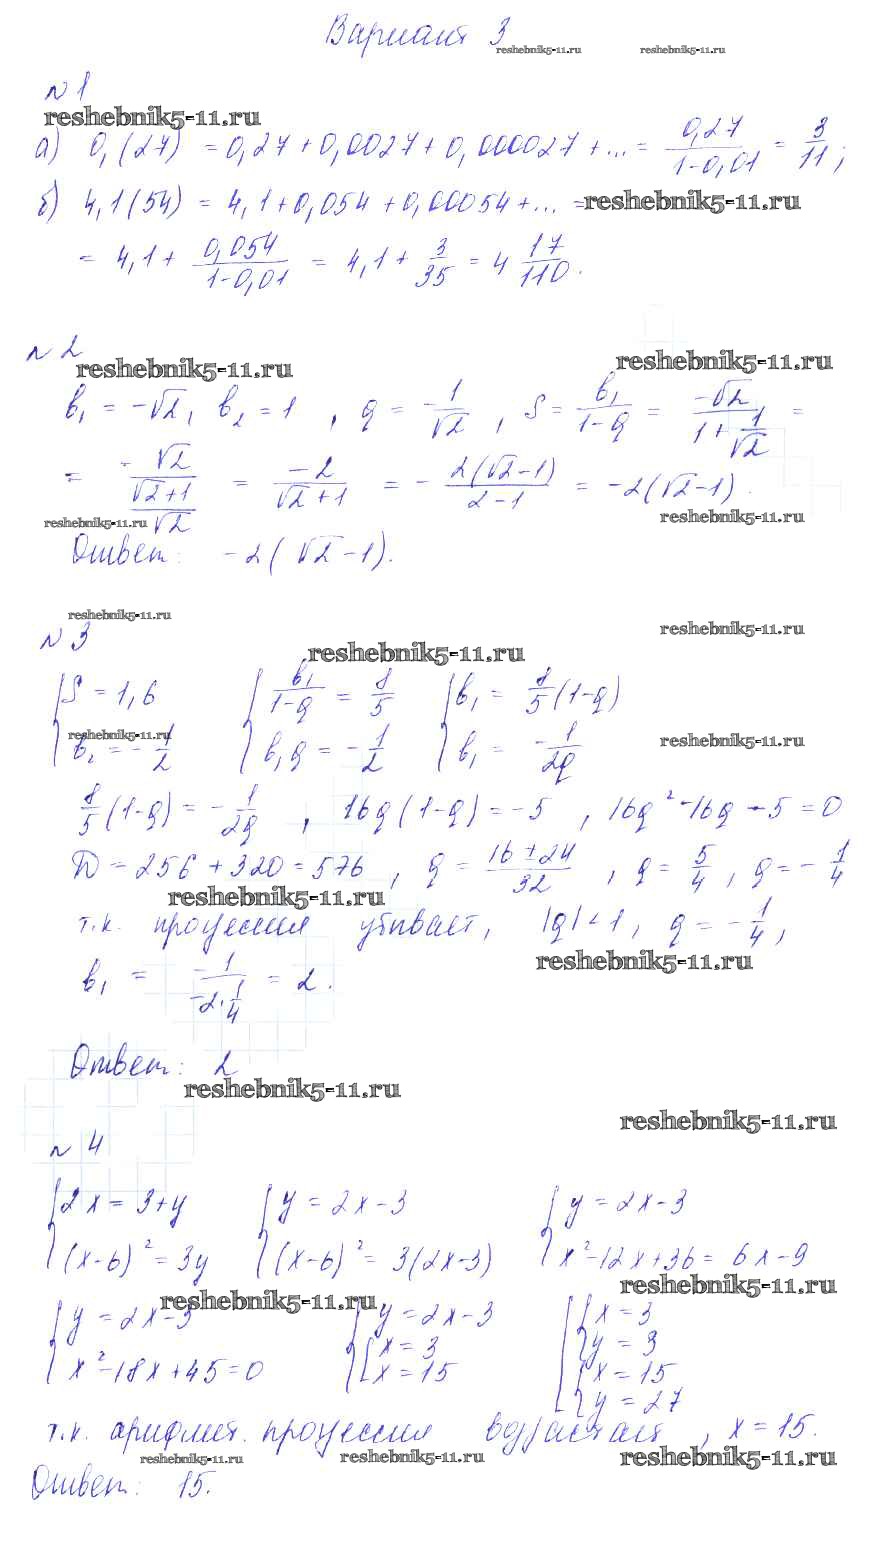 Вариант 3
reshebnik5-11.ru reshebnik5-11.ru
№1
reshebnik5-11.ru
а) 0,(27) = 0,27 + 0,0027 + 0,000027 + ... = 0,27/(1-0,01) = 3/11;
б) 4,1(54) = 4,1 + 0,054 + 0,00054 + ... =
reshebnik5-11.ru
= 4,1 + 0,054/(1-0,01) = 4,1 + 3/35 = 4 17/110.
№2
reshebnik5-11.ru reshebnik5-11.ru
b₁ = -√2, b₂ = 1, q = -1/√2, S = b₁/(1-q) = -√2/(1+1/√2) =
= -√2/((√2+1)/√2) = -2/(√2+1) = -2(√2-1)/(2-1) = -2(√2-1).
reshebnik5-11.ru reshebnik5-11.ru
Ответ: -2(√2-1).
reshebnik5-11.ru reshebnik5-11.ru
№3
reshebnik5-11.ru
{S = 1,6 {b₁/(1-q) = 8/5 {b₁ = 8/5(1-q)
b₂ = -1/2 b₁q = -1/2 b₁ = -1/2q
reshebnik5-11.ru reshebnik5-11.ru
8/5(1-q) = -1/2q, 16q(1-q) = -5, 16q²-16q-5=0
D = 256+320=576, q = (16±24)/32, q = 5/4, q = -1/4
reshebnik5-11.ru
т.к. прогрессия убывает, |q|<1, q = -1/4,
reshebnik5-11.ru
b₁ = -1/(-2·1/4) = 2.
Ответ: 2
reshebnik5-11.ru
reshebnik5-11.ru
№4
{2x = 3+y {y = 2x-3 {y = 2x-3
(x-6)² = 3y (x-6)² = 3(2x-3) x²-12x+36 = 6x-9
reshebnik5-11.ru reshebnik5-11.ru
{y = 2x-3 {y = 2x-3 [{x = 3
x²-18x+45=0 [x = 3 y = 3
x = 15 {x = 15
y = 27
т.к. арифмет. прогрессия возрастает, x = 15.
reshebnik5-11.ru reshebnik5-11.ru reshebnik5-11.ru
Ответ: 15.